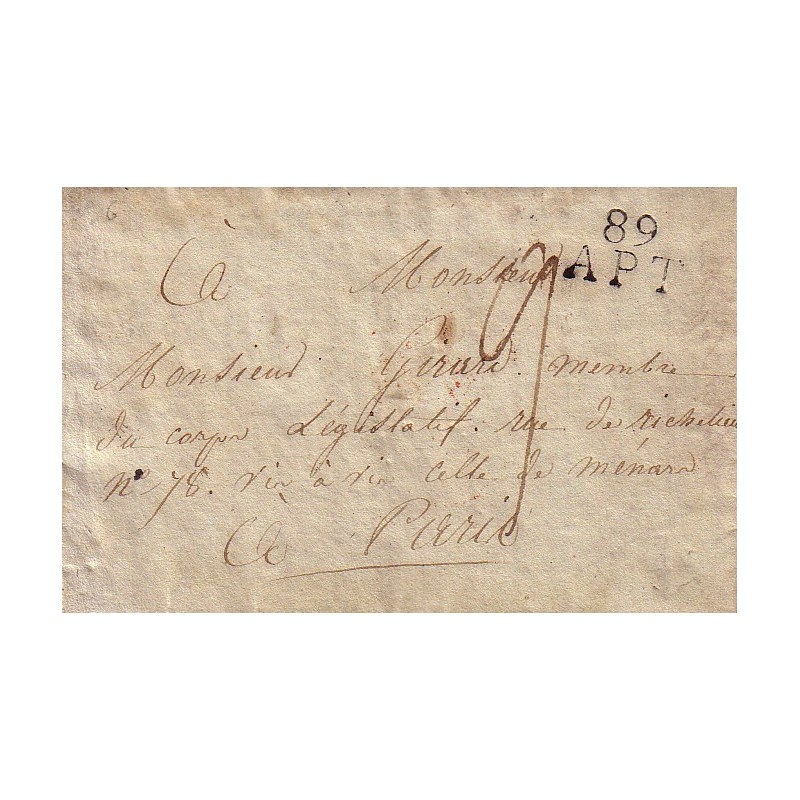 6
89
À Monsieur APT
Monsieur Girard membre
du corps Législatif. rue de richelieu
n° 78. vis à vis celle de ménars
à Paris